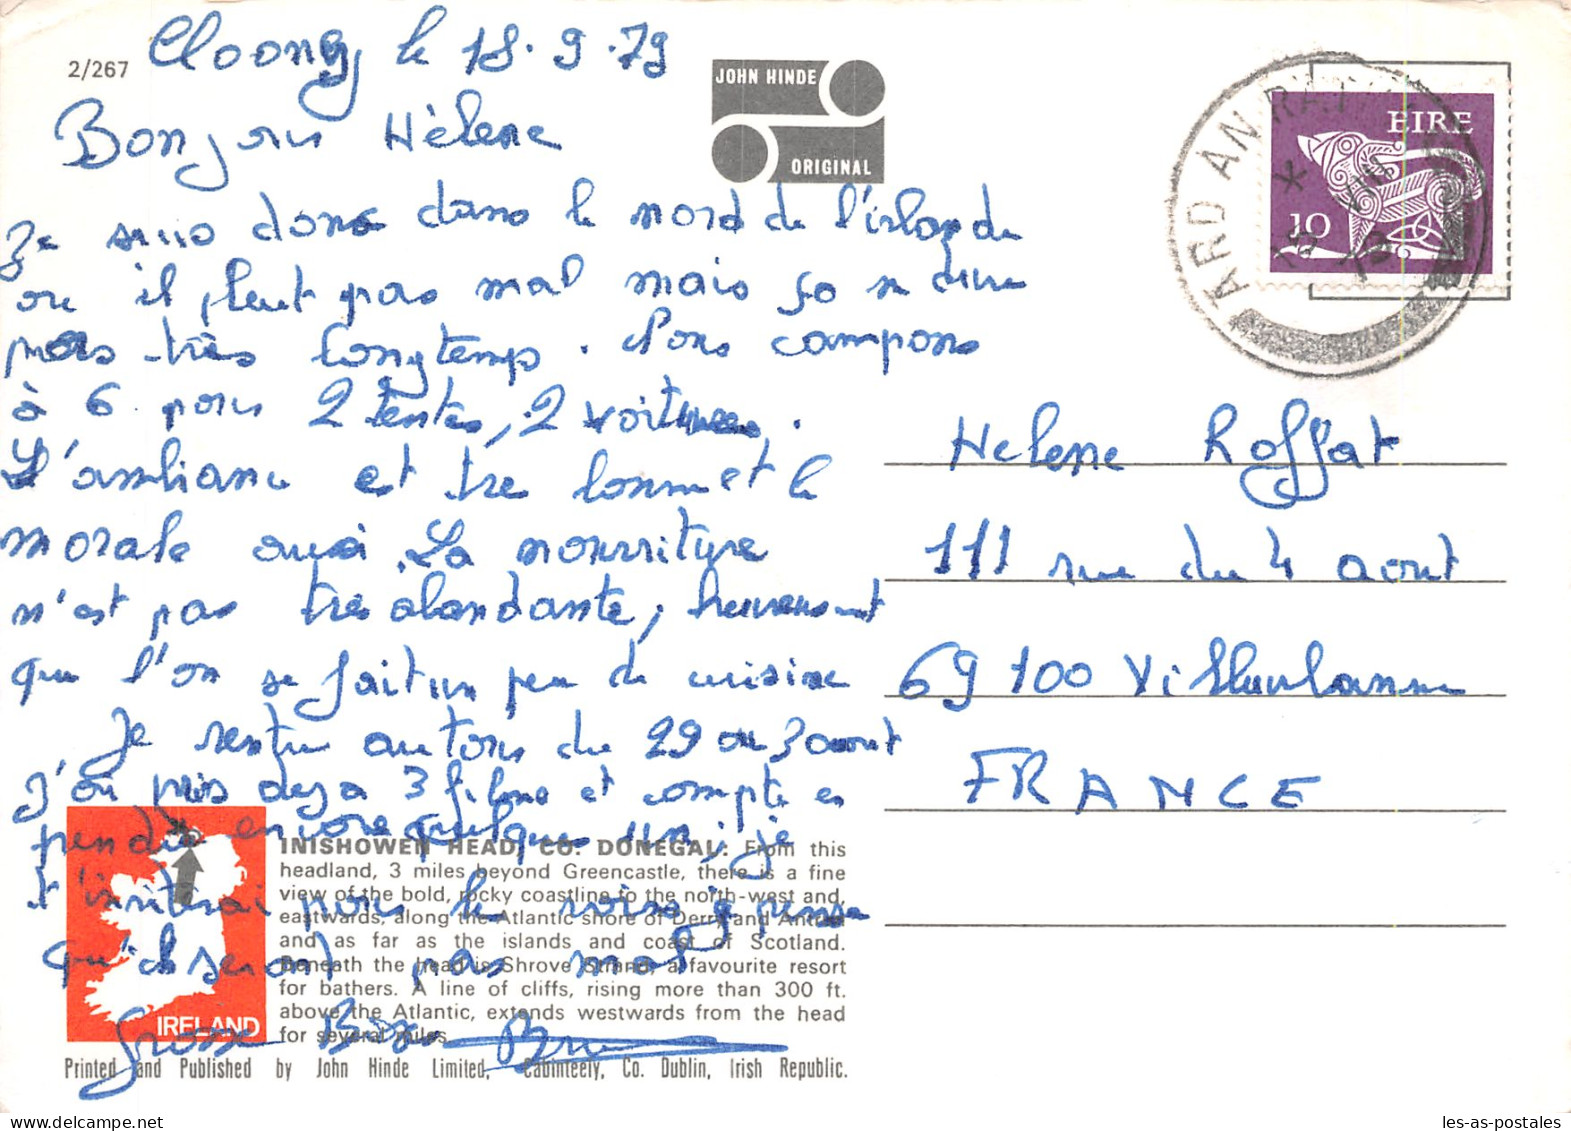 2/267
le 18.9.79
JOHN HINDE
ORIGINAL
ARD AN
EIRE
10
Bonjour Hélène
Je suis donc dans le nord de l'irlande
ou il pleut pas mal mais ça ne dure
pas très longtemps. Nous campons
à 6 pour 2 tentes, 2 voitures.
L'ambiance et tre bonne et le
morale aussi. La nourriture
n'est pas très abondante, heureusement
que l'on se fait un peu de cuisine
Je rentre autour du 29 ou 30 aout
J'ai pris deja 3 films et compte en
pendre encore quelque un, je
t'inviterai pour les voirs je pense
qu'ils seront pas mal
Grosse Bise Bruno
Helene Roffat
111 rue du 4 aout
69100 Villeurbanne
FRANCE
INISHOWEN HEAD, CO. DONEGAL. From this
headland, 3 miles beyond Greencastle, there is a fine
view of the bold, rocky coastline to the north-west and,
eastwards, along the Atlantic shore of Derry and Antrim
and as far as the islands and coast of Scotland.
Beneath the head is Shrove Strand, a favourite resort
for bathers. A line of cliffs, rising more than 300 ft.
above the Atlantic, extends westwards from the head
for several miles.
IRELAND
Printed and Published by John Hinde Limited, Cabinteely, Co. Dublin, Irish Republic.
les-as-postales